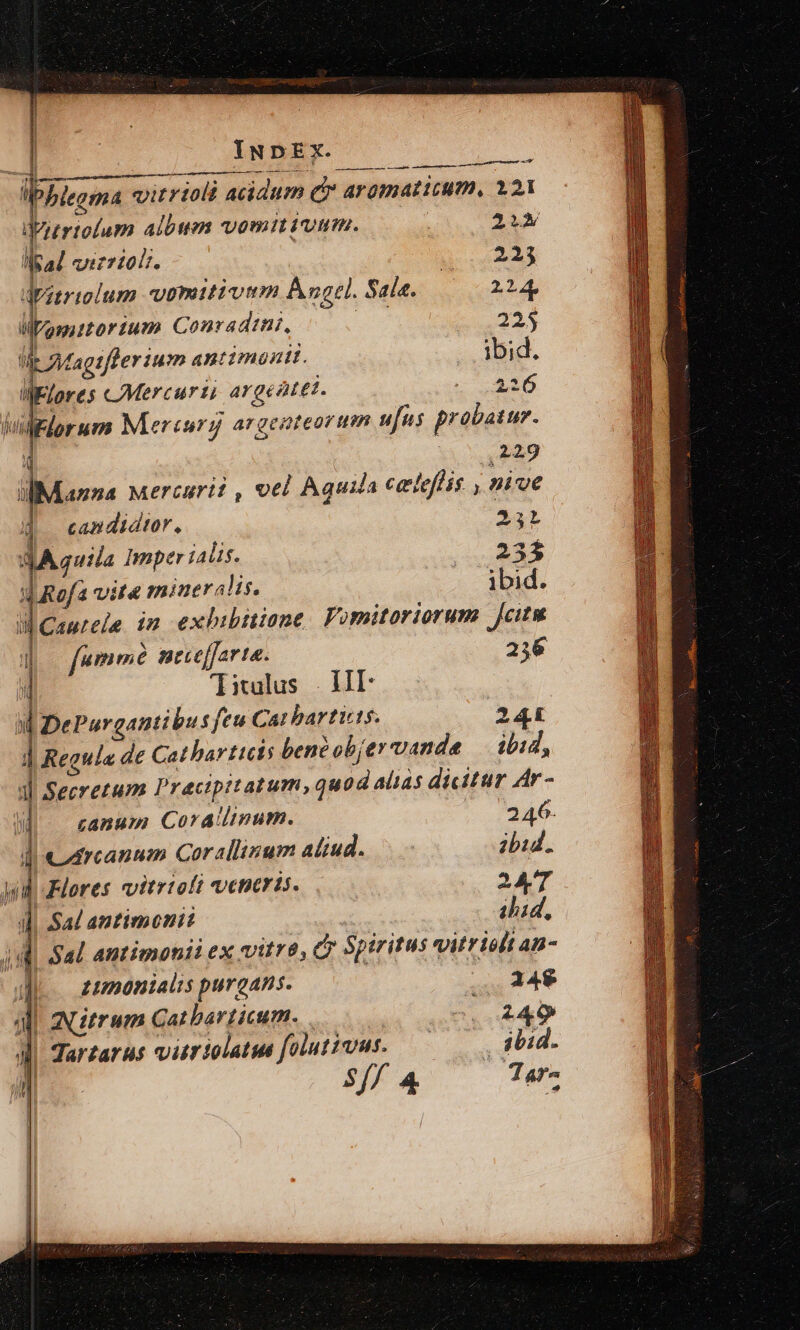 INDEX.
Phlegma vitrioli acidum & aromaticum, 221
Vitriolum album vomitivum. 222
Sal vitrioli. 223
Vitriolum vomitivum Angel. Sale. 224
Vomitorium Conradini, 225
Magiſterium antimonii. ibid.
Flores Mercurii argentei. 226
Florum Mercurij argenteorum uſus probatur.
229
Manna Mercurii, vel Aquila cæleſtis, nive
candidior. 232
Aquila Imperialis. 233
Roſa vitæ mineralis. ibid.
Cautelæ in exhibitione Vomitoriorum ſcitu
ſummè neceſſariæ. 236
Titulus III.
De Purgantibus ſeu Catharticis. 241
Regulæ de Catharticis benè obſervandæ ibid,
Secretum Præcipitatum, quod aliàs dicitur Ar-
canum Corallinum. 246.
Arcanum Corallinum aliud. ibid.
Flores vitrioli veneris. 247
Sal antimonii ibid,
Sal antimonii ex vitro, & Spiritus vitrioli an-
timonialis purgans. 248
Nitrum Catharticum. 249
Tartarus vitriolatus ſolutivus. ibid.
Sſſ 4 Tar-